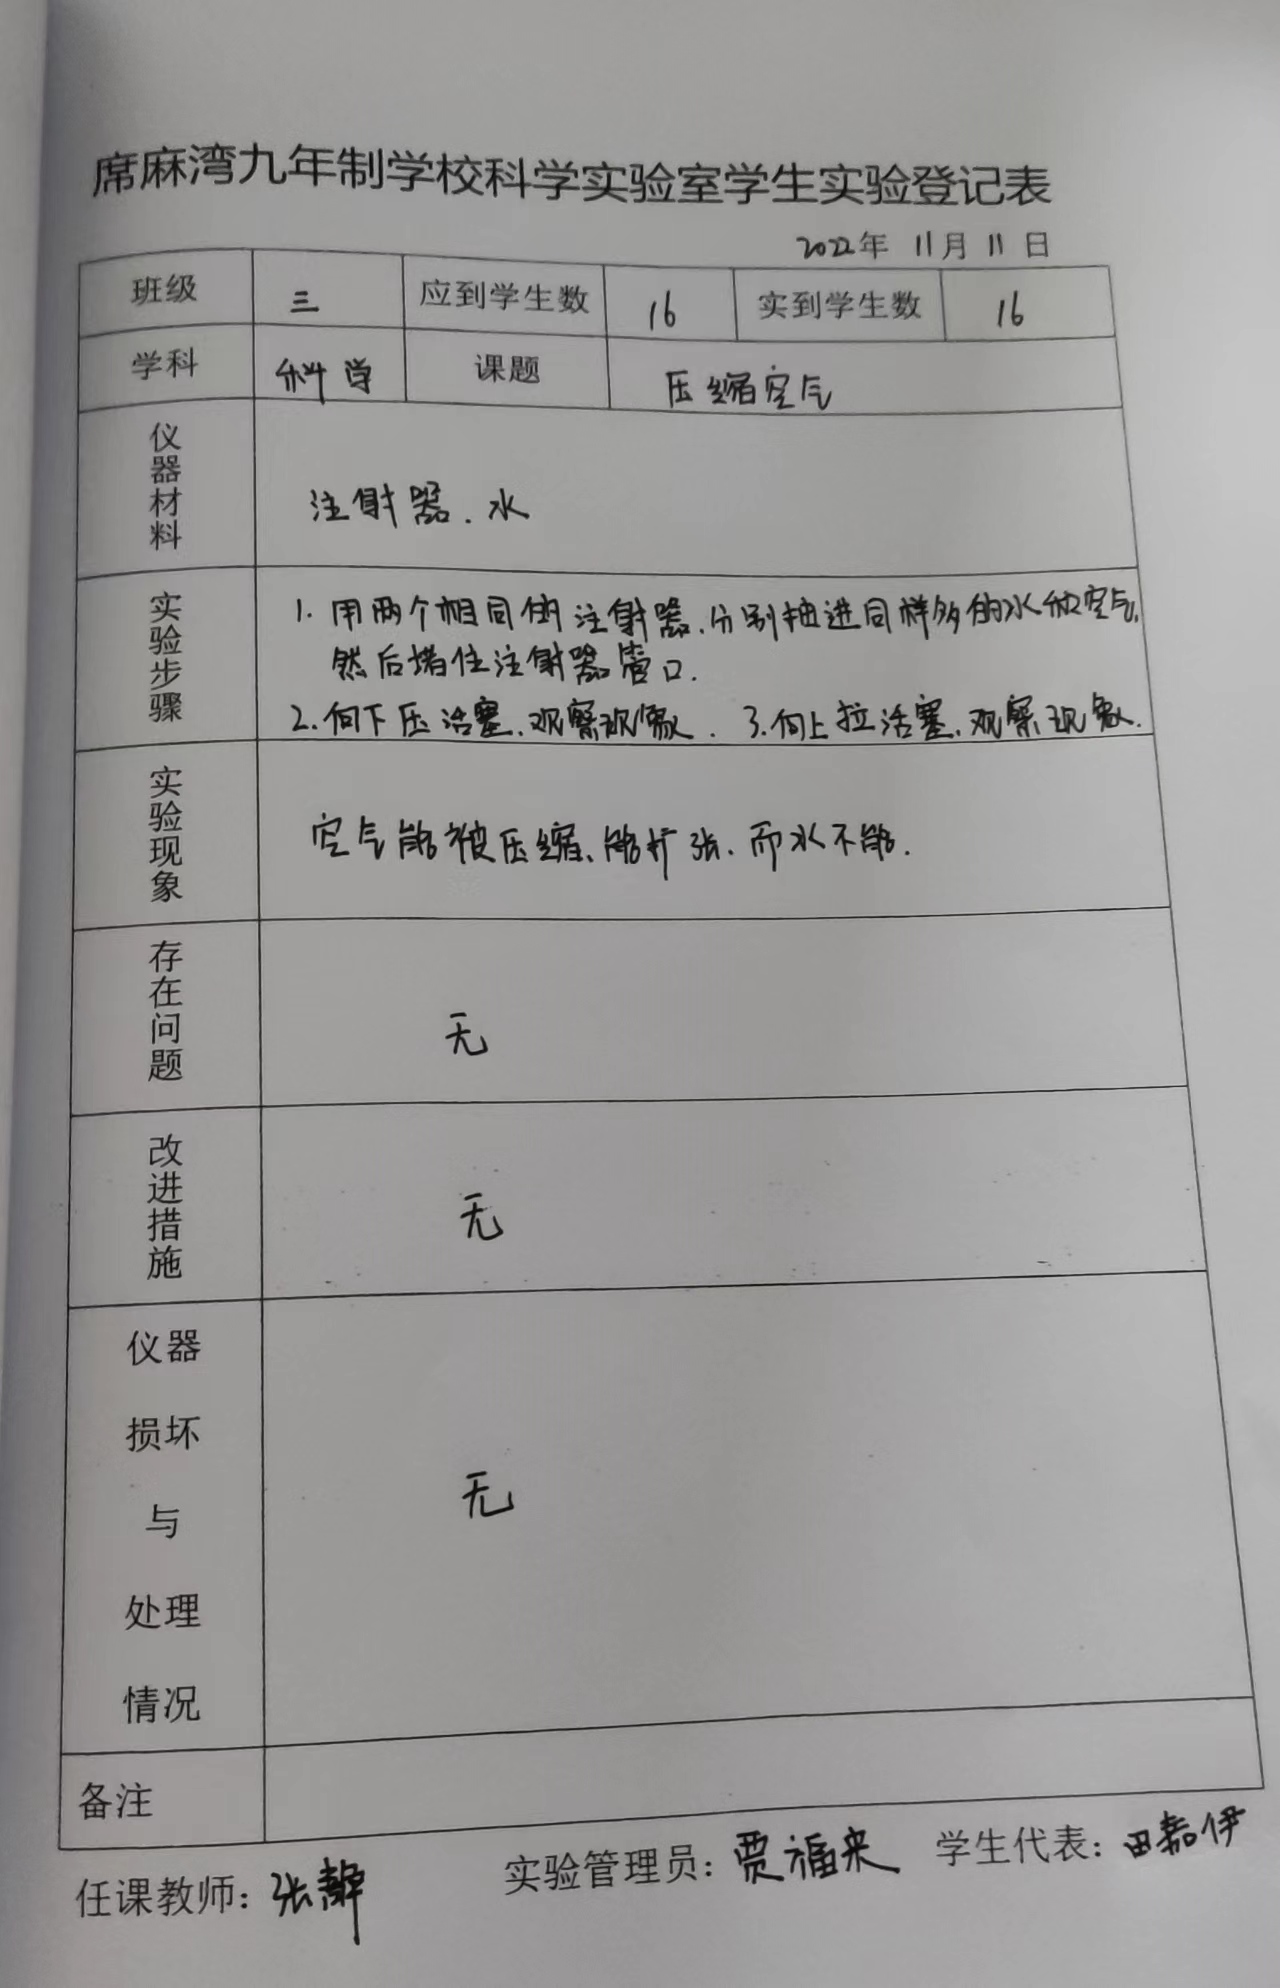 席麻湾九年制学校科学实验室学生实验登记表
2022年 11月 11日
班级 三 应到学生数 16 实到学生数 16
学科 科学 课题 压缩空气
仪器材料 注射器、水
实验步骤
1. 用两个相同的注射器、分别抽进同样多的水和空气,
然后堵住注射器管口.
2. 向下压活塞、观察现象. 3. 向上拉活塞、观察现象.
实验现象 空气能被压缩、能扩张、而水不能.
存在问题 无
改进措施 无
仪器损坏与处理情况 无
备注
任课教师: 张静 实验管理员: 贾福来 学生代表: 田嘉伊